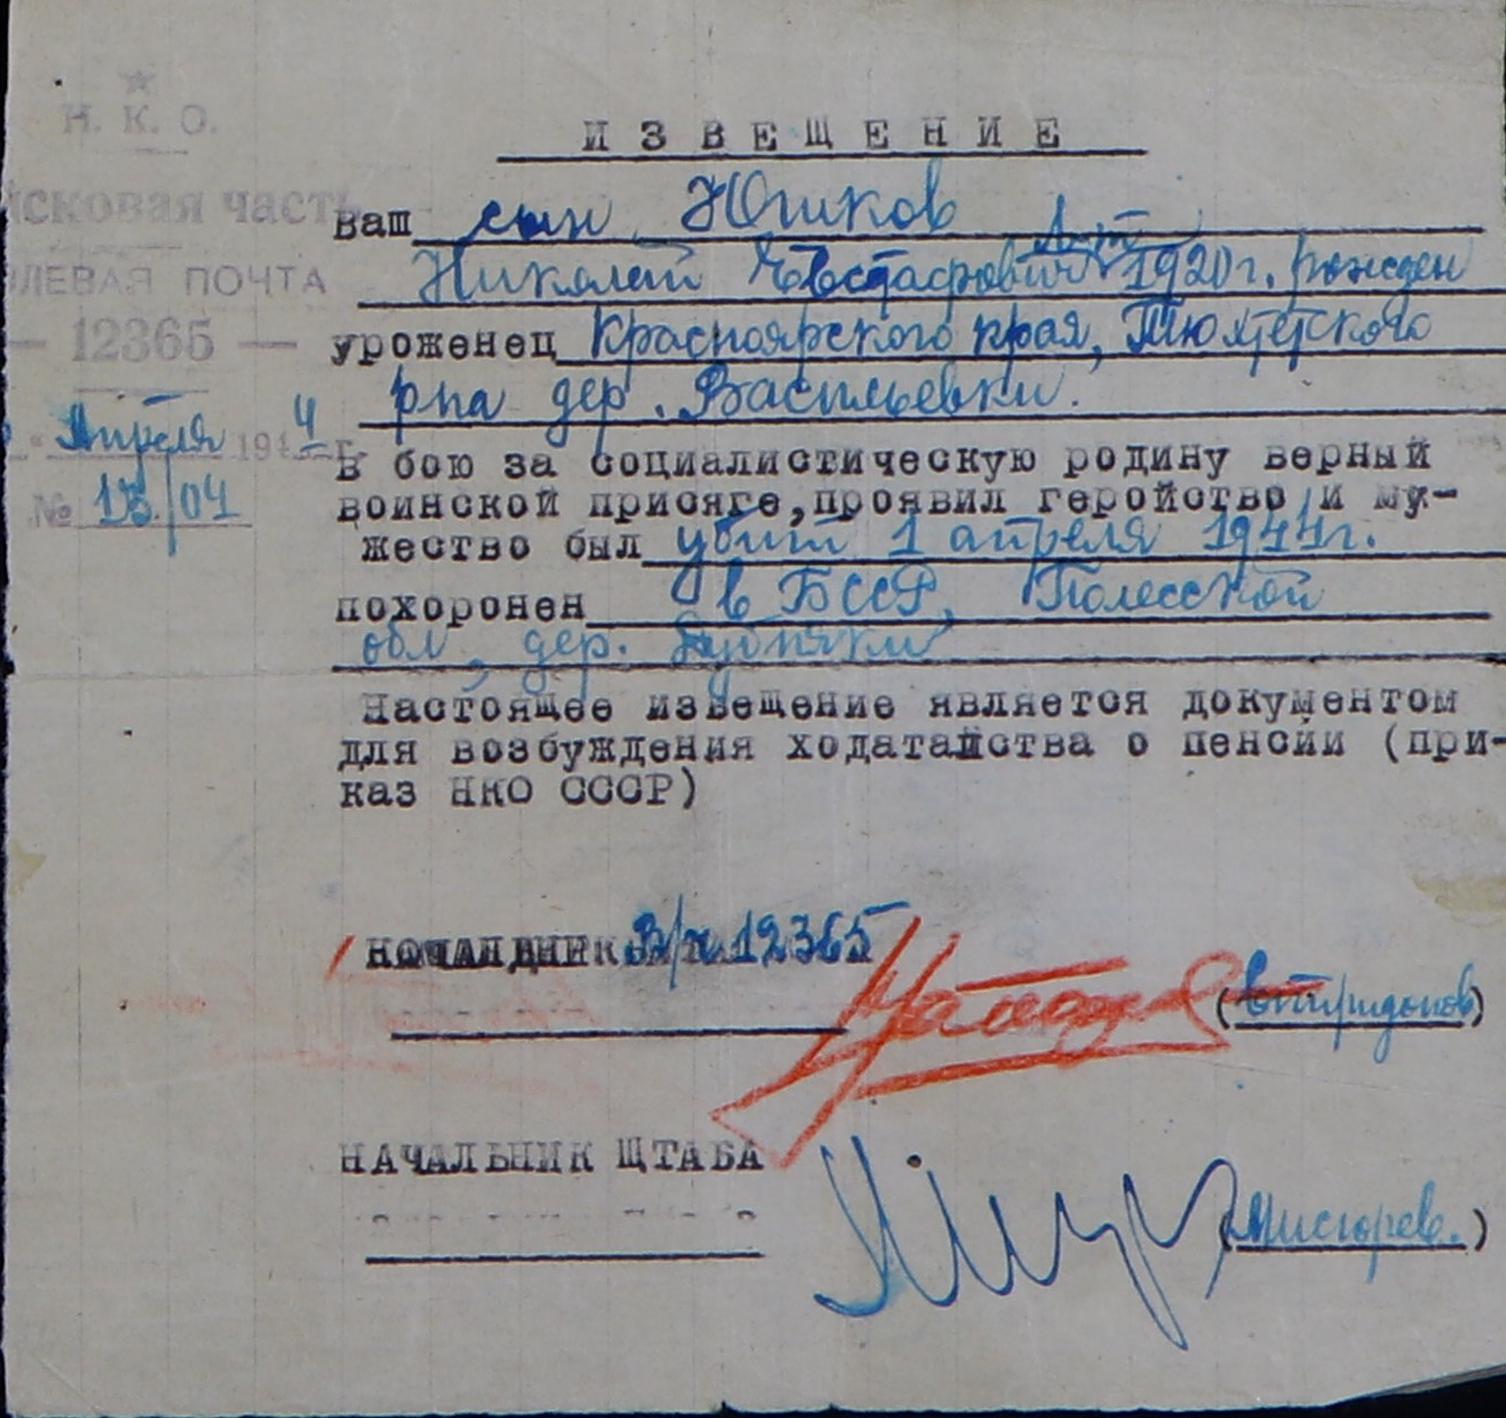 Н. К. О.
йсковая часть
ЛЕВАЯ ПОЧТА
— 12365 —
" Апреля 1944 г.
№ 13/04
ИЗВЕЩЕНИЕ
ваш сын Юшков
л-т
Николай Евстафьевич 1920 г. рожден
уроженец Красноярского края, Тюхтетского
р-на дер. Васильевки.
в бою за социалистическую родину верный
воинской присяге, проявил геройство и му-
жество был убит 1 апреля 1944 г.
похоронен в БССР, Полесской
обл, дер. Дубняки
Настоящее извещение является документом
для возбуждения ходатайства о пенсии (при-
каз НКО СССР)
В/ч 12365
(Спиридонов)
НАЧАЛЬНИК ЩТАБА
(Мисюрев.)